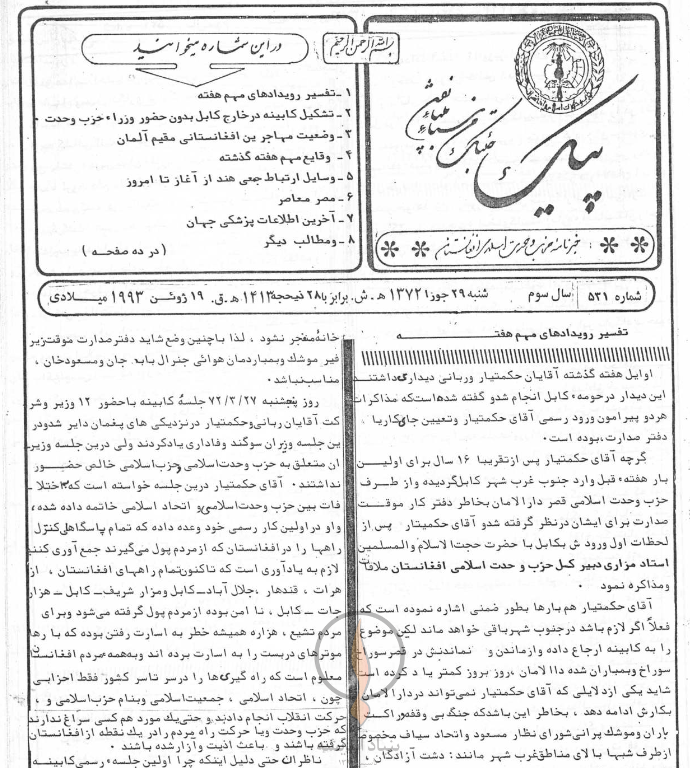 بسم الله الرحمن الرحیم
در این شماره میخوانید
۱ - تفسیر رویدادهای مهم هفته
۲ - تشکیل کابینه در خارج کابل بدون حضور وزراء حزب وحدت ٠
۳ - وضعیت مهاجرین افغانستانی مقیم آلمان
۴ - وقایع مهم هفته گذشته
۵ - وسایل ارتباط جمعی هند از آغاز تا امروز
۶ - مصر معاصر
۷ - آخرین اطلاعات پزشکی جهان
۸ - ومطالب دیگر
( در ده صفحه )
پیک
خبرنامه حزب وحدت اسلامی افغانستان
شماره ۵۳۱ سال سوم شنبه ۲۹ جوزا ۱۳۷۲ هـ.ش. برابر با ۲۸ ذیحجه ۱۴۱۳ هـ.ق. ۱۹ ژوئن ۱۹۹۳ میلادی
تفسیر رویدادهای مهم هفته
اوایل هفته گذشته آقایان حکمتیار وربانی دیدار داشتند
این دیدار درحومهٔ کابل انجام شدو گفته شده است که مذاکرات
هردو پیرامون ورود رسمی آقای حکمتیار وتعیین جای کاریا
دفتر صدارت، بوده است ٠
گرچه آقای حکمتیار پس ازتقریبا ۱۶ سال برای اولین
بار هفته قبل وارد جنوب غرب شهر کابل گردیده و از طرف
حزب وحدت اسلامی قصر دارالامان بخاطر دفتر کار موقت
صدارت برای ایشان درنظر گرفته شدو آقای حکمتیار پس از
لحظات اول ورودش بکابل با حضرت حجت الاسلام والمسلمین
استاد مزاری دبیر کل حزب و حدت اسلامی افغانستان ملاقات
ومذاکره نمود ٠
آقای حکمتیار هم بارها بطور ضمنی اشاره نموده است که
فعلاً اگر لازم باشد درجنوب شهرباقی خواهد ماند لکن موضوع
را به کابینه ارجاع داده وازماندن و نماندنش در قصرسوراخ
سوراخ وبمباران شده داالامان ،روز بروز کمتر یا د کرده است
شاید یکی ازدلایلی که آقای حکمتیار نمی تواند دردارالامان
بکارش ادامه دهد ، بخاطر این باشدکه جنگ بی وقفه وراکت
باران وموشک پرانی شورای نظار مسعود واتحاد سیاف مخصوصا
ازطرف شبها با لای مناطق غرب شهر مانند: دشت آزادگان ،
خانه منفجر نشود ، لذا باچنین وضع شاید دفترصدارت موقت زیر
فیر موشک وبمباردمان هوائی جنرال بابه جان ومسعودخان ،
مناسب نباشد ٠
روز پنجشنبه ۷۲/۳/۲۷ جلسهٔ کابینه باحضور ۱۲ وزیر وشر
کت آقایان ربانی وحکمتیار درنزدیکی های پغمان دایر شدودر
ین جلسه وزیران سوگند وفاداری یادکردند ولی درین جلسه وزیر
ان متعلق به حزب وحدت اسلامی وحزب اسلامی خالص حضور
نداشتند ٠ آقای حکمتیار درین جلسه خواسته است که اختلا
فات بین حزب وحدت اسلامی و اتحاد اسلامی خاتمه داده شده ،
واو دراولین کار رسمی خود وعده داده که تمام پاسگاههای کنترل
راهها را درافغانستان که ازمردم پول می گیرند جمع آوری کنند
لازم به یادآوری است که تاکنون تمام راههای افغانستان ، از
هرات ، قندهار ،جلال آباد_کابل ومزار شریف_ کابل _ هزار
جات _ کابل ، نا امن بوده ازمردم پول گرفته می شود وبرای
مردم تشیع ، هزاره همیشه خطر به اسارت رفتن بوده که با رها
موترهای دربست را به اسارت برده اند وبه همه مردم افغانستان
معلوم است که راه گیری ها را درسر تاسر کشور فقط احزابی
چون ، اتحاد اسلامی ، جمعیت اسلامی وبنام حزب اسلامی و ،
حرکت انقلاب انجام دادند و حتی یک مورد هم کسی سراغ ندارند
که حزب وحدت ویا حرکت راه مردم رادر یک نقطه ازافغانستان
گرفته باشند و باعث اذیت وآزارشده باشند ٠
ناظران حتی دلیل اینکه چرا اولین جلسه رسمی کابینه